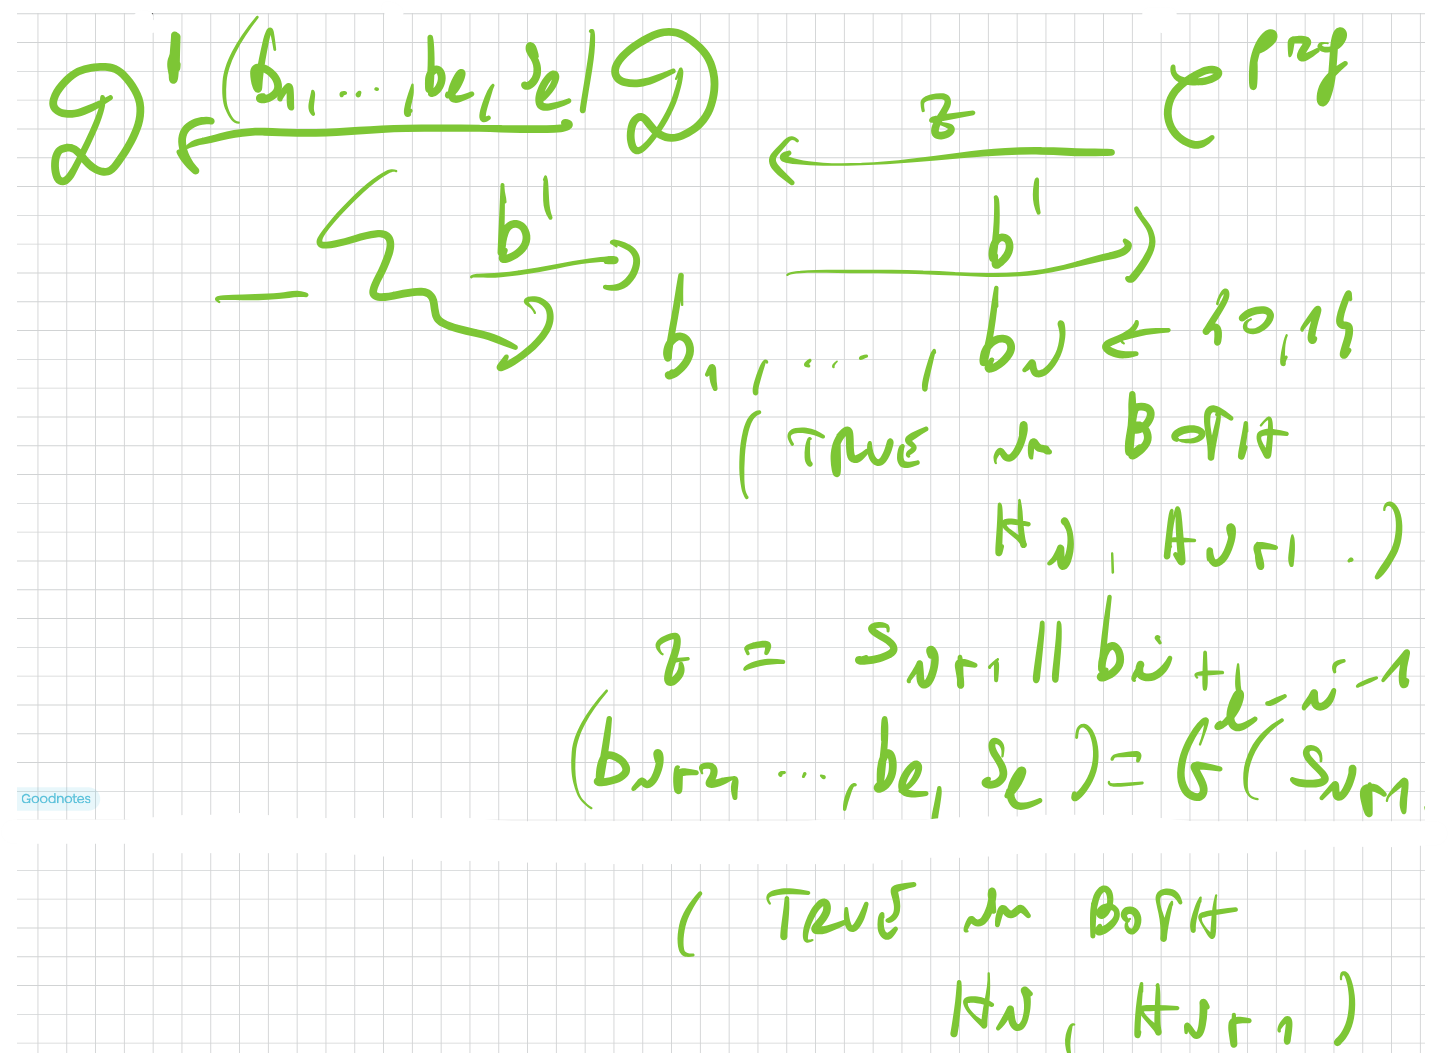 D' (b₁, ..., bₑ, sₑ) D z C^prg
b' b'
b₁, ..., bᵢ ← {0,1}
(TRUE in BOTH
Hᵢ, Hᵢ₊₁.)
z = sᵢ₊₁ || bᵢ₊₁
l-i-1
(bᵢ₊₂, ..., bₑ, sₑ) = G (sᵢ₊₁
Goodnotes
(TRUE in BOTH
Hᵢ, Hᵢ₊₁)